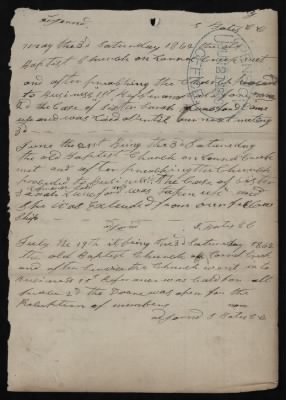 adjorned S Bates CC
may the 3d Saturday 1862 the old
Baptist Church on Round Lick met
and after preaching the Church proceeded
to Business 1st Reference
the Case of Sister Sarah Lunsford Came
up and was laid over until our next meting
3d
June the 21st being the 3d Saturday
the old Baptist Church on Round Lick
met and after preaching the Church
proceeded to business 1st the Case of Sister
Sarah Lunsford was taken up and
She was Excluded from our fellow
Ship
adjorn S Bates CC
July the 19th it being the 3d Saturday 1862
the old Baptist Church on Round Lick
and after the Church went into
Business 1st Reference was Called for all
2d the Doore was open for the
Reception of members non
adjorned S Bates CC